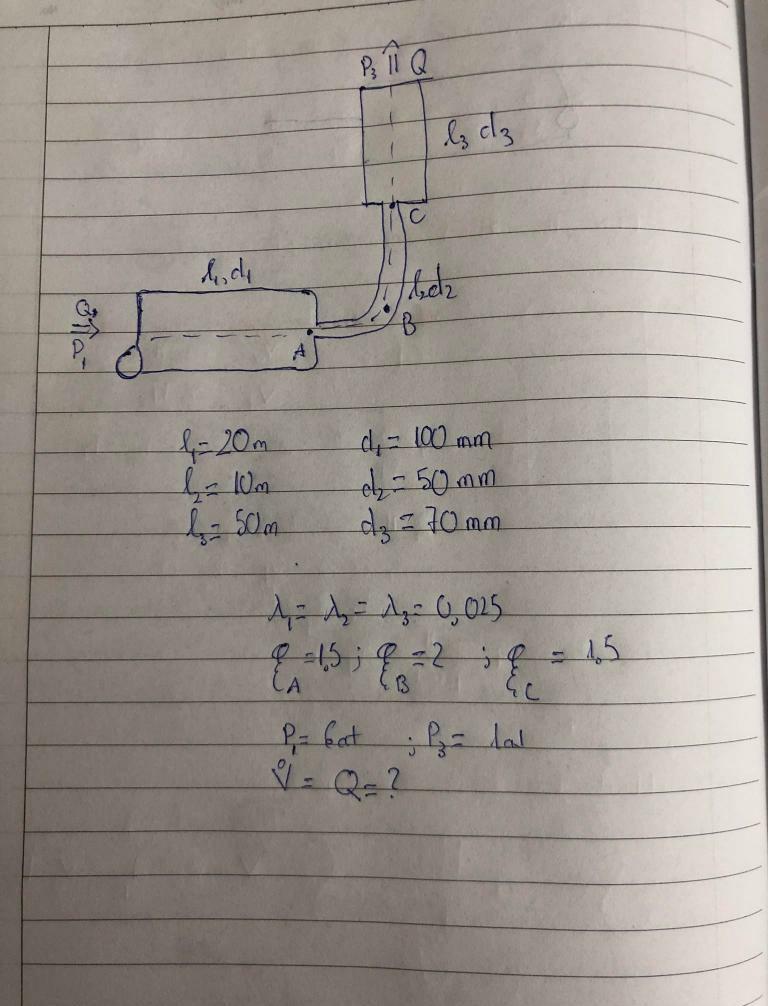 P₃ Q
l₃ d₃
C
l₁, d₁
l₂d₂
B
Q
P₁
A
l₁= 20m d₁= 100 mm
l₂= 10m d₂= 50 mm
l₃= 50m d₃ = 70 mm
λ₁= λ₂= λ₃= 0,025
ξ_A =1,5 ; ξ_B =2 ; ξ_C = 1,5
P₁= 6at ; P₃= 1at
V̊ = Q=?